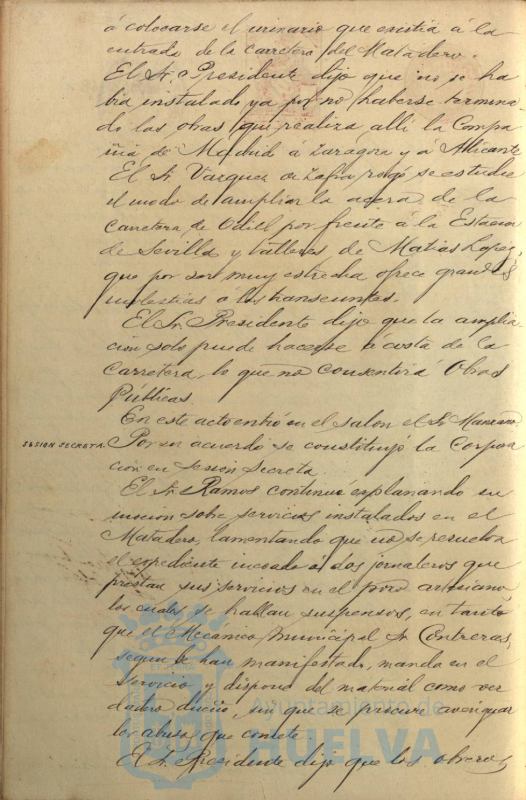 á colocarse el urinario que existía á la
entrada de la carretera del Matadero.
El Sr. Presidente dijo que no se ha
bia instalado ya por no haberse termina-
do las obras que realiza alli la Compa
ñia de Madrid á Zaragoza y á Alicante
El Sr. Vazquez de Zafra rogó se estudie
el modo de ampliar la acera de la
Carretera de Odiel por frente á la Estacion
de Sevilla y talleres de Matias Lopez,
que por ser muy estrecha ofrece grandes
molestias a los transeuntes.
El Sr. Presidente dijo que la amplia
cion solo puede hacerse a costa de la
Carretera, lo que no consentirá Obras
Públicas.
En este acto entró en el salon el Sr. Manzano
SESION SECRETA. Por un acuerdo se constituyó la Corpora
cion en Sesion Secreta.
El Sr. Ramos continuó explanando su
mocion sobre servicios instalados en el
Matadero, lamentando que no se resuelva
el expediente incoado á dos jornaleros que
prestan sus servicios en el pozo artesiano,
los cuales se hallan suspensos, en tanto
que el Mecánico Municipal Sr. Contreras,
segun le han manifestado, manda en el
servicio y dispone del material como ver
dadero dueño, sin que se procure averiguar
los abusos que comete.
El Sr. Presidente dijo que los obreros
Ayuntamiento de
HUELVA